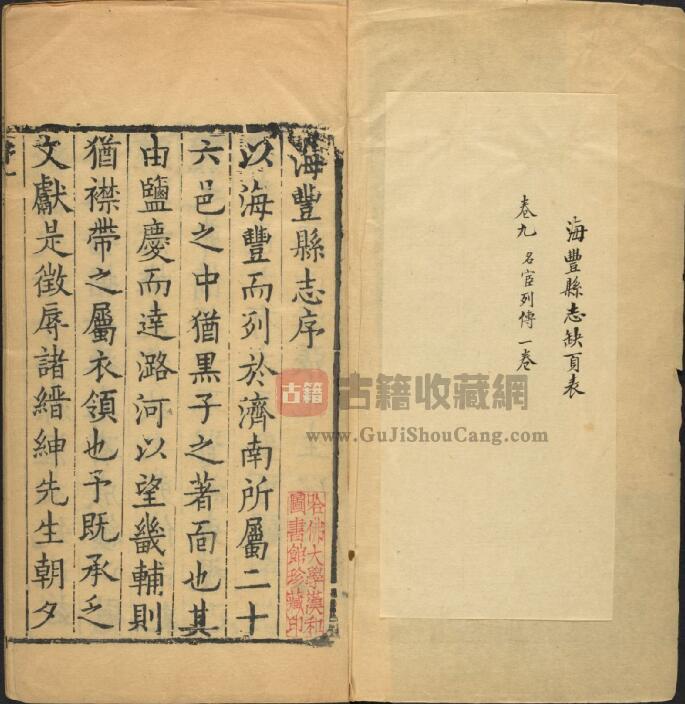 海豐縣志缺頁表
卷九 名宦列傳一卷
海豐縣志序
以海豐而列於濟南所屬二十
六邑之中猶黑子之著面也其
由鹽慶而達潞河以望畿輔則
猶襟帶之屬衣領也予既承乏
文獻是徵辱諸縉紳先生朝夕
哈佛大學漢和
圖書館珍藏印
古籍
古籍收藏網
www.GuJiShouCang.com